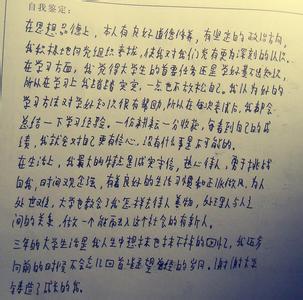 自我鉴定:
在思想品德上,本人有良好道德修养,有坚定的政治方向,
我积极地向党组织靠拢,使我对我们党有更为深刻的认识。
在学习方面,我觉得大学生的首要任务还是学好基本知识,
所以在学习上我踏踏实实,一点也不放松自己。我认为好的
学习方法对学好知识很有帮助,所以在每次考试后,我都会
总结一下学习经验。一份耕耘一分收获,每看到自己的成
绩,我就会对自己更有信心,没有什么事是不可能的。
在生活上,我最大的特点是诚实守信,热心待人,勇于挑战
自我,时间观念强,有着良好的生活习惯和正派作风。为人
处世,大学也教会了我怎样去待人美物,处理人与人之
间的关系,做一个能融入这个社会的有新人。
三年的大学生活是我人生中想抹也抹不掉的回忆,我迈步
向前的时候不会忘记回首凝望曾经的岁月。谢谢大学
生铸造了成长的我。